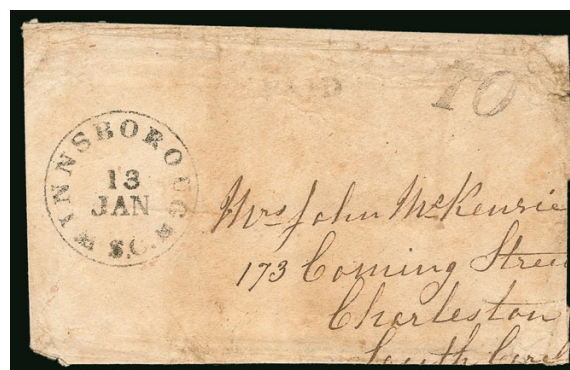 PAID 10
WINNSBOROUGH
13
JAN
S.C.
Mrs John McKenzie
173 Coming Stree
Charleston
South Carol